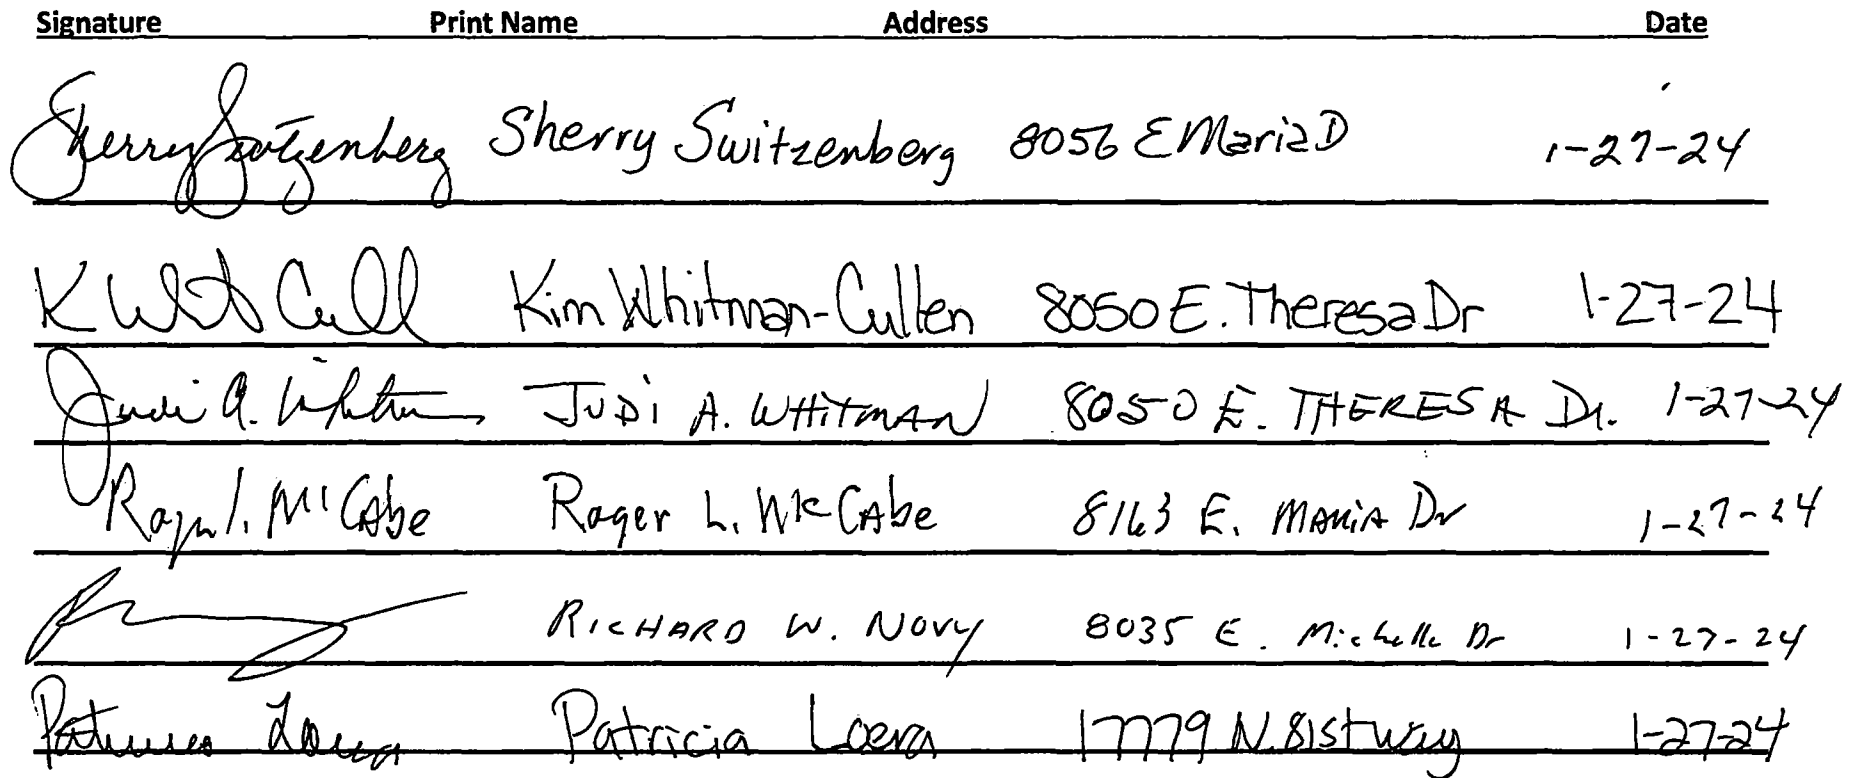 Signature Print Name Address Date
Sherry Switzenberg Sherry Switzenberg 8056 E Maria D 1-27-24
K Whit Cull Kim Whitman-Cullen 8050 E. Theresa Dr 1-27-24
Judi A. Whitman JUDi A. WHiTMAN 8050 E. THERESA Dr. 1-27-24
Roger L. McCabe Roger L. McCabe 8163 E. MARiA Dr 1-27-24
RicHARD W. NOVY 8035 E. Michelle Dr 1-27-24
Patricia Loera Patricia Loera 17779 N. 81st way 1-27-24